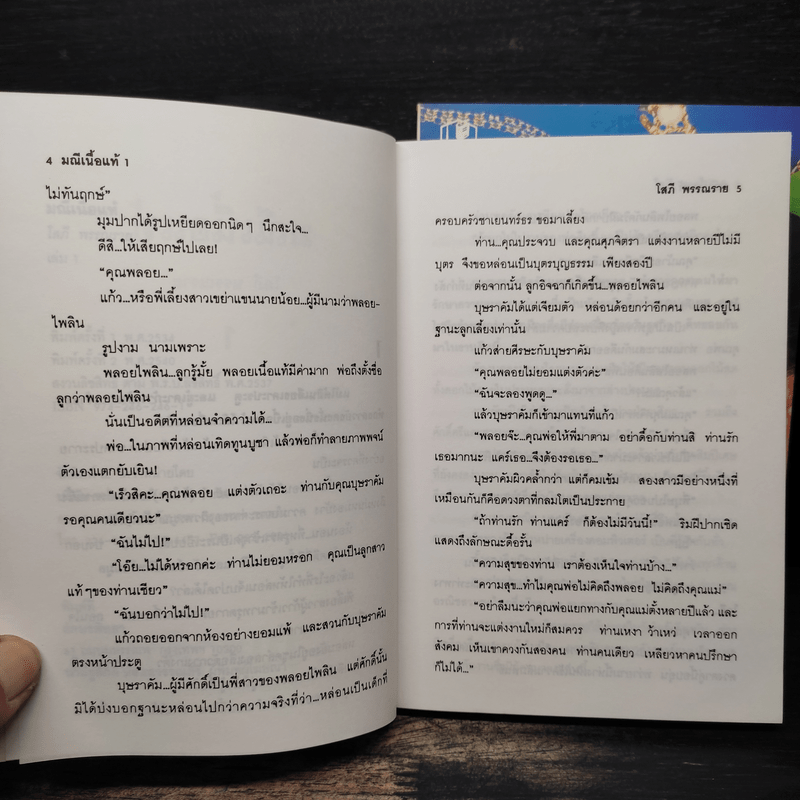 4 มณีเนื้อแท้ 1
ไม่ทันฤกษ์”
มุมปากได้รูปเหยียดออกนิดๆ นึกสะใจ...
ดีสิ...ให้เสียฤกษ์ไปเลย!
“คุณพลอย...”
แก้ว...หรือพี่เลี้ยงสาวเขย่าแขนนายน้อย...ผู้มีนามว่าพลอย-
ไพลิน
รูปงาม นามเพราะ
พลอยไพลิน...ลูกรู้มั้ย พลอยเนื้อแท้มีค่ามาก พ่อถึงตั้งชื่อ
ลูกว่าพลอยไพลิน
นั่นเป็นอดีตที่หล่อนจำความได้...
พ่อ...ในภาพที่หล่อนเทิดทูนบูชา แล้วพ่อก็ทำลายภาพพจน์
ตัวเองแตกยับเยิน!
“เร็วสิคะ...คุณพลอย แต่งตัวเถอะ ท่านกับคุณบุษราคัม
รอคุณคนเดียวนะ”
“ฉันไม่ไป!”
“โอ๊ย...ไม่ได้หรอกค่ะ ท่านไม่ยอมหรอก คุณเป็นลูกสาว
แท้ๆของท่านเชียว”
“ฉันบอกว่าไม่ไป!”
แก้วถอยออกจากห้องอย่างยอมแพ้ และสวนกับบุษราคัม
ตรงหน้าประตู
บุษราคัม...ผู้มีศักดิ์เป็นพี่สาวของพลอยไพลิน แต่ศักดิ์นั้น
มิได้บ่งบอกฐานะหล่อนไปกว่าความจริงที่ว่า...หล่อนเป็นเด็กที่
โสภี พรรณราย 5
ครอบครัวชาเยนทร์ธร ขอมาเลี้ยง
ท่าน...คุณประจวบ และคุณศุภจิตรา แต่งงานหลายปีไม่มี
บุตร จึงขอหล่อนเป็นบุตรบุญธรรม เพียงสองปี
ต่อจากนั้น ลูกอิจฉาก็เกิดขึ้น...พลอยไพลิน
บุษราคัมได้แต่เจียมตัว หล่อนด้อยกว่าอีกคน และอยู่ใน
ฐานะลูกเลี้ยงเท่านั้น
แก้วส่ายศีรษะกับบุษราคัม
“คุณพลอยไม่ยอมแต่งตัวค่ะ”
“ฉันจะลองพูดดู...”
แล้วบุษราคัมก็เข้ามาแทนที่แก้ว
“พลอยจ๊ะ...คุณพ่อให้พี่มาตาม อย่าดื้อกับท่านสิ ท่านรัก
เธอมากนะ แคร์เธอ...จึงต้องรอเธอ...”
บุษราคัมผิวคล้ำกว่า แต่ก็คมเข้ม สองสาวมีอย่างหนึ่งที่
เหมือนกันก็คือดวงตาที่กลมโตเป็นประกาย
“ถ้าท่านรัก ท่านแคร์ ก็ต้องไม่มีวันนี้!” ริมฝีปากเชิด
แสดงถึงลักษณะดื้อรั้น
“ความสุขของท่าน เราต้องเห็นใจท่านบ้าง...”
“ความสุข...ทำไมคุณพ่อไม่คิดถึงพลอย ไม่คิดถึงคุณแม่”
“อย่าลืมนะว่าคุณพ่อแยกทางกับคุณแม่ตั้งหลายปีแล้ว และ
การที่ท่านจะแต่งงานใหม่ก็สมควร ท่านเหงา ว้าเหว่ เวลาออก
สังคม เห็นเขาควงกันสองคน ท่านคนเดียว เหลียวหาคนปรึกษา
ก็ไม่ได้...”